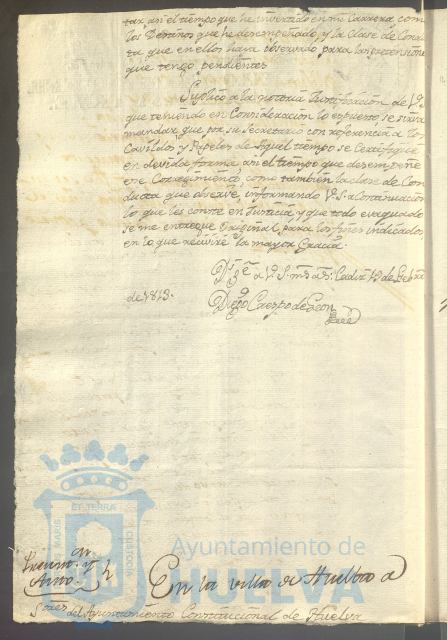 tar, asi el tiempo que he invertido en mi Carrera como
los Destinos que he desempeñado, y la clase de Condu
ta que en ellos haya observado para las pretensiones
que tengo pendientes
Suplico a la notoria Justificacion de V.S.
que teniendo en Consideracion lo expuesto se sirva
mandar que por su Secretario con referencia a los
Cavildos y Papeles de aquel tiempo se Certifique
en devida forma asi el tiempo que desempeñé
ese Corregimiento como tambien la clase de Con
ducta que observé, informando V.S. a continuacion
lo que les conste en Justicia, y que todo evaquado
se me entregue Original para los fines indicados
en lo que recivire la mayor Gracia
Cadiz 19 de
de 1813.
Diego Crespo de Leon
En la villa de Huelba a
del Ayuntamiento Constitucional de Huelva
Ayuntamiento de
HUELVA